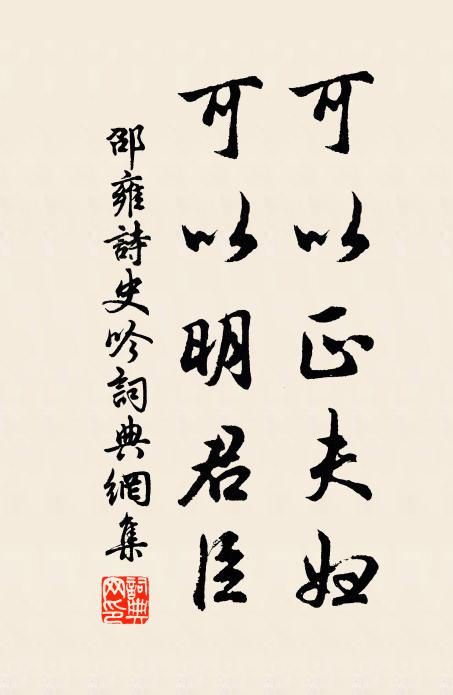 可以正夫妇
可以明君臣
邵雍詩史吟詞典網集
詞典网印